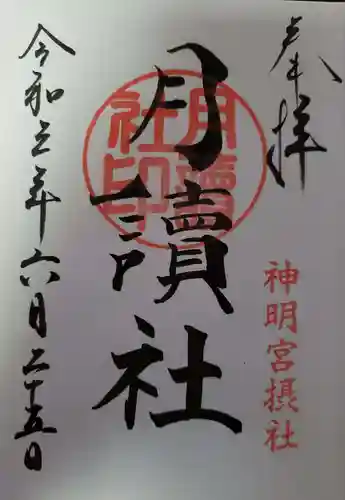 奉拝
神明宮摂社
月讀社
月讀
社印
令和五年六月二十五日